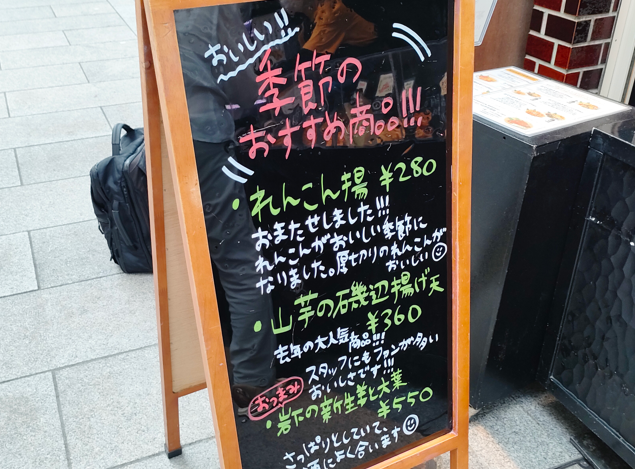 おいしい!!
季節の
おすすめ商品!!!
・れんこん揚 ¥280
おまたせしました!!!
れんこんがおいしい季節に
なりました。厚切りのれんこんが
おいしい
・山芋の磯辺揚げ天
¥360
去年の大人気商品!!!
スタッフにもファンが多い
おいしさです!!!
おつまみ
・岩下の新生姜と大葉
¥550
さっぱりとしていて、
お酒によく合います